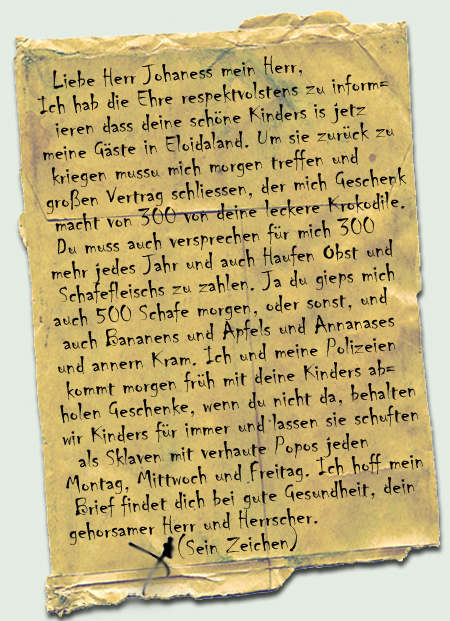 Liebe Herr Johaness mein Herr,
Ich hab die Ehre respektvolstens zu inform=
ieren dass deine schöne Kinders is jetz
meine Gäste in Eloidaland. Um sie zurück zu
kriegen mussu mich morgen treffen und
großen Vertrag schliessen, der mich Geschenk
macht von 300 von deine leckere Krokodile.
Du muss auch versprechen für mich 300
mehr jedes Jahr und auch Haufen Obst und
Schafefleischs zu zahlen. Ja du gieps mich
auch 500 Schafe morgen, oder sonst, und
auch Bananens und Äpfels und Annanases
und annern Kram. Ich und meine Polizeien
kommt morgen früh mit deine Kinders ab=
holen Geschenke, wenn du nicht da, behalten
wir Kinders für immer und lassen sie schuften
als Sklaven mit verhaute Popos jeden
Montag, Mittwoch und Freitag. Ich hoff mein
Brief findet dich bei gute Gesundheit, dein
gehorsamer Herr und Herrscher.
(Sein Zeichen)